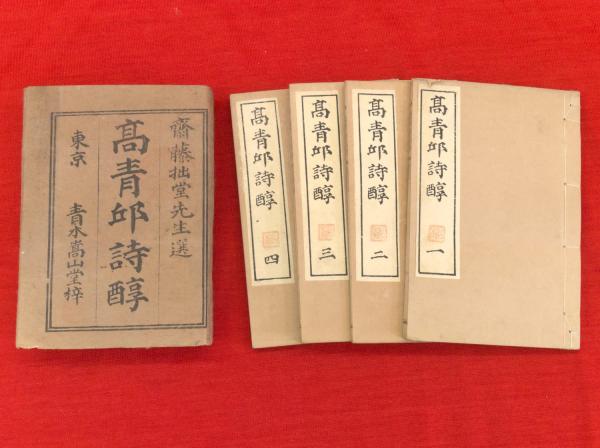 齋藤拙堂先生選
高青邱詩醇
東京 青木嵩山堂梓
高青邱詩醇 一
高青邱詩醇 二
高青邱詩醇 三
高青邱詩醇 四